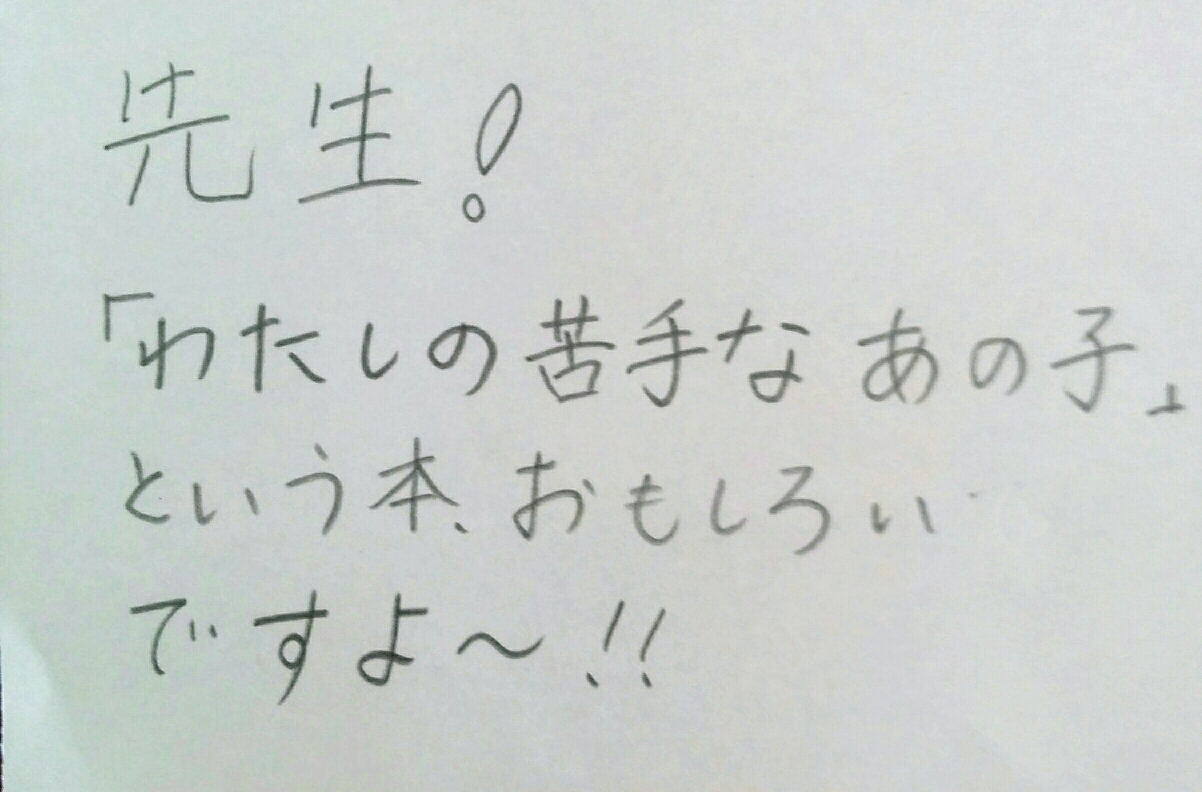 先生!
「わたしの苦手なあの子」
という本、おもしろい
ですよ〜!!